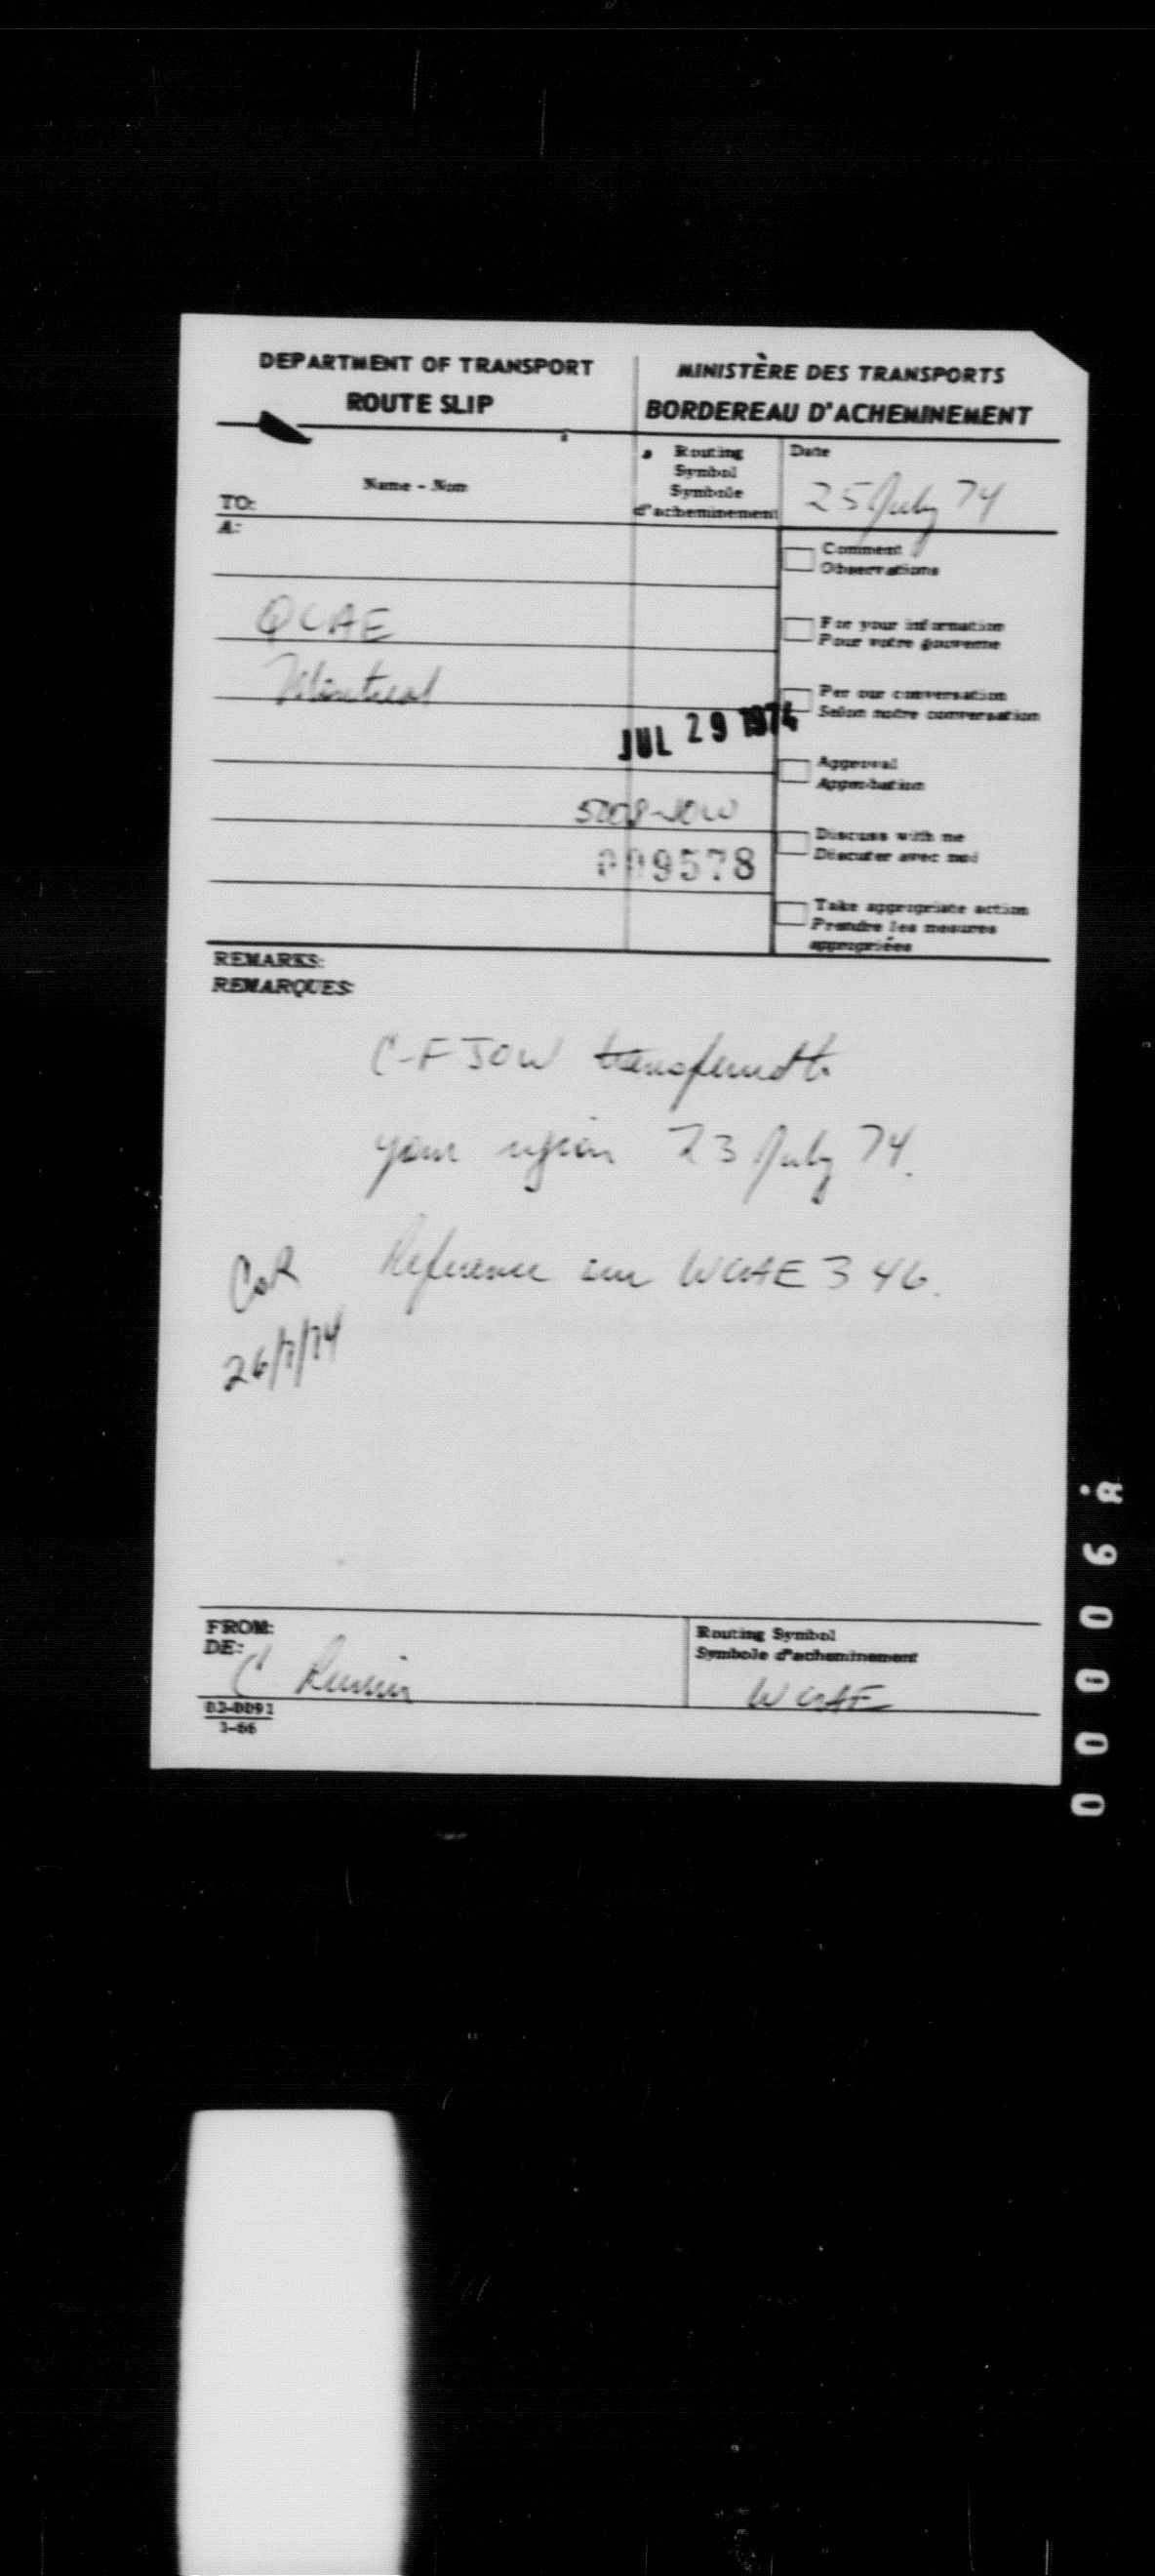 DEPARTMENT OF TRANSPORT
ROUTE SLIP
MINISTÈRE DES TRANSPORTS
BORDEREAU D'ACHEMINEMENT
Name - Nom
TO:
A:
Routing
Symbol
Symbole
d'acheminement
Date
25 July 74
QCAE
Montreal
JUL 29 1974
5008-JOW
009578
Comment
Observations
For your information
Pour votre gouverne
Per our conversation
Selon notre conversation
Approval
Approbation
Discuss with me
Discuter avec moi
Take appropriate action
Prendre les mesures
appropriées
REMARKS:
REMARQUES:
C-FJOW transferred to
your region 23 July 74.
Reference our WCAE 346.
CoR
26/7/74
FROM:
DE:
C
Routing Symbol
Symbole d'acheminement
WCAE
02-0091
1-66
00006A